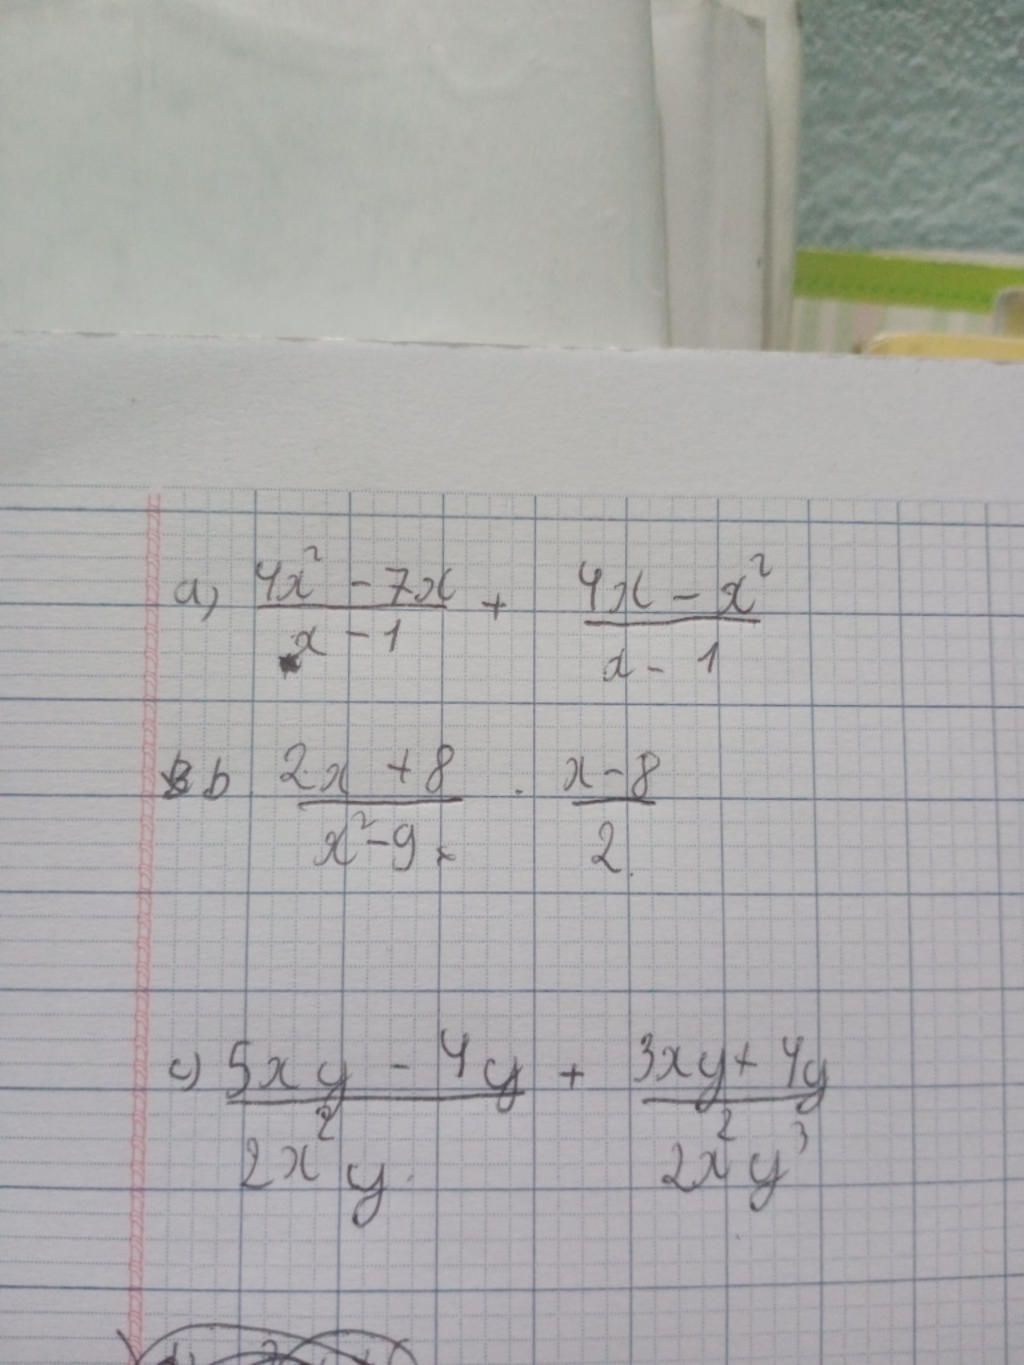 a) (4x² - 7x)/(x - 1) + (4x - x²)/(x - 1)
b (2x + 8)/(x² - 9) . (x - 8)/2
c) (5xy - 4y)/(2x²y) + (3xy + 4y)/(2x²y³)